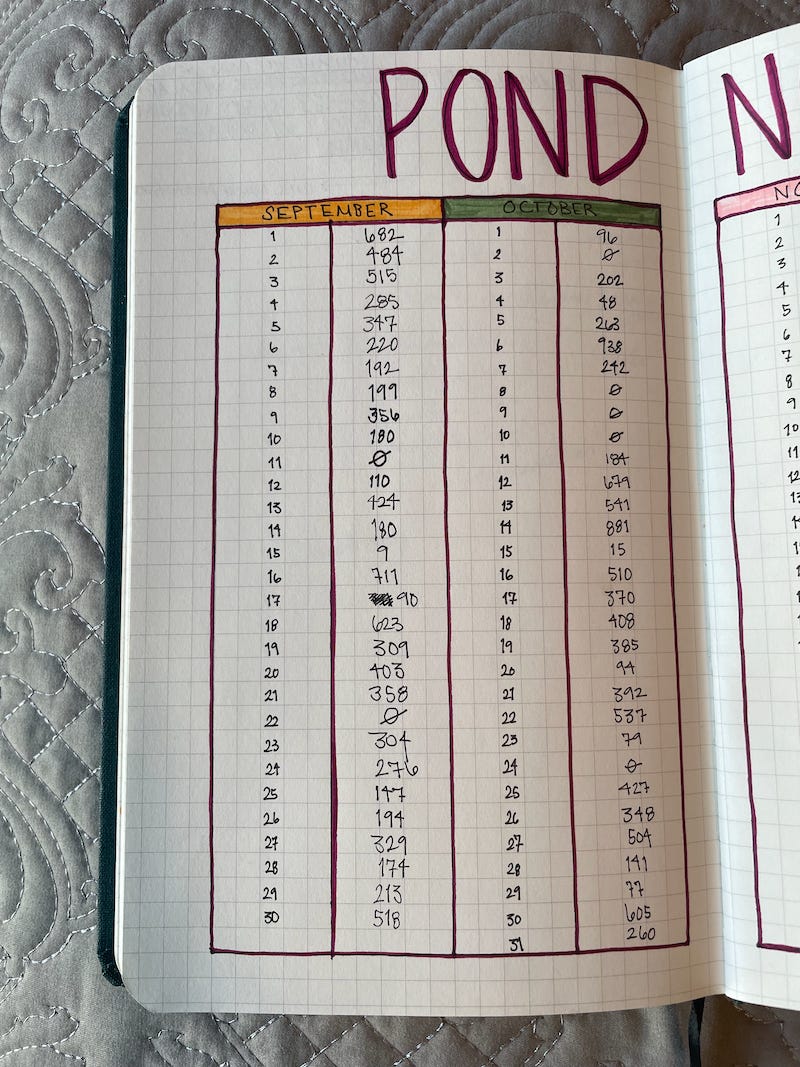 POND N
SEPTEMBER OCTOBER NO
1 682 1 96 1
2 484 2 0 2
3 515 3 202 3
4 285 4 48 4
5 347 5 263 5
6 220 6 938 6
7 192 7 242 7
8 199 8 0 8
9 356 9 0 9
10 180 10 0 10
11 0 11 184 11
12 110 12 679 12
13 424 13 541 13
14 180 14 881
15 9 15 15
16 711 16 510
17 90 17 370
18 623 18 408
19 309 19 385
20 403 20 94
21 358 21 392
22 0 22 537
23 304 23 79
24 276 24 0
25 147 25 427
26 194 26 348
27 329 27 504
28 174 28 141
29 213 29 77
30 518 30 605
31 260